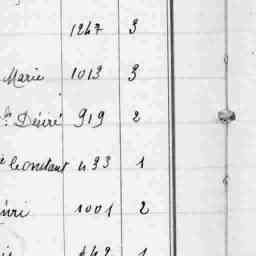 1247 3
Marie 1013 3
Désiré 919 2
Constant 493 1
1001 2